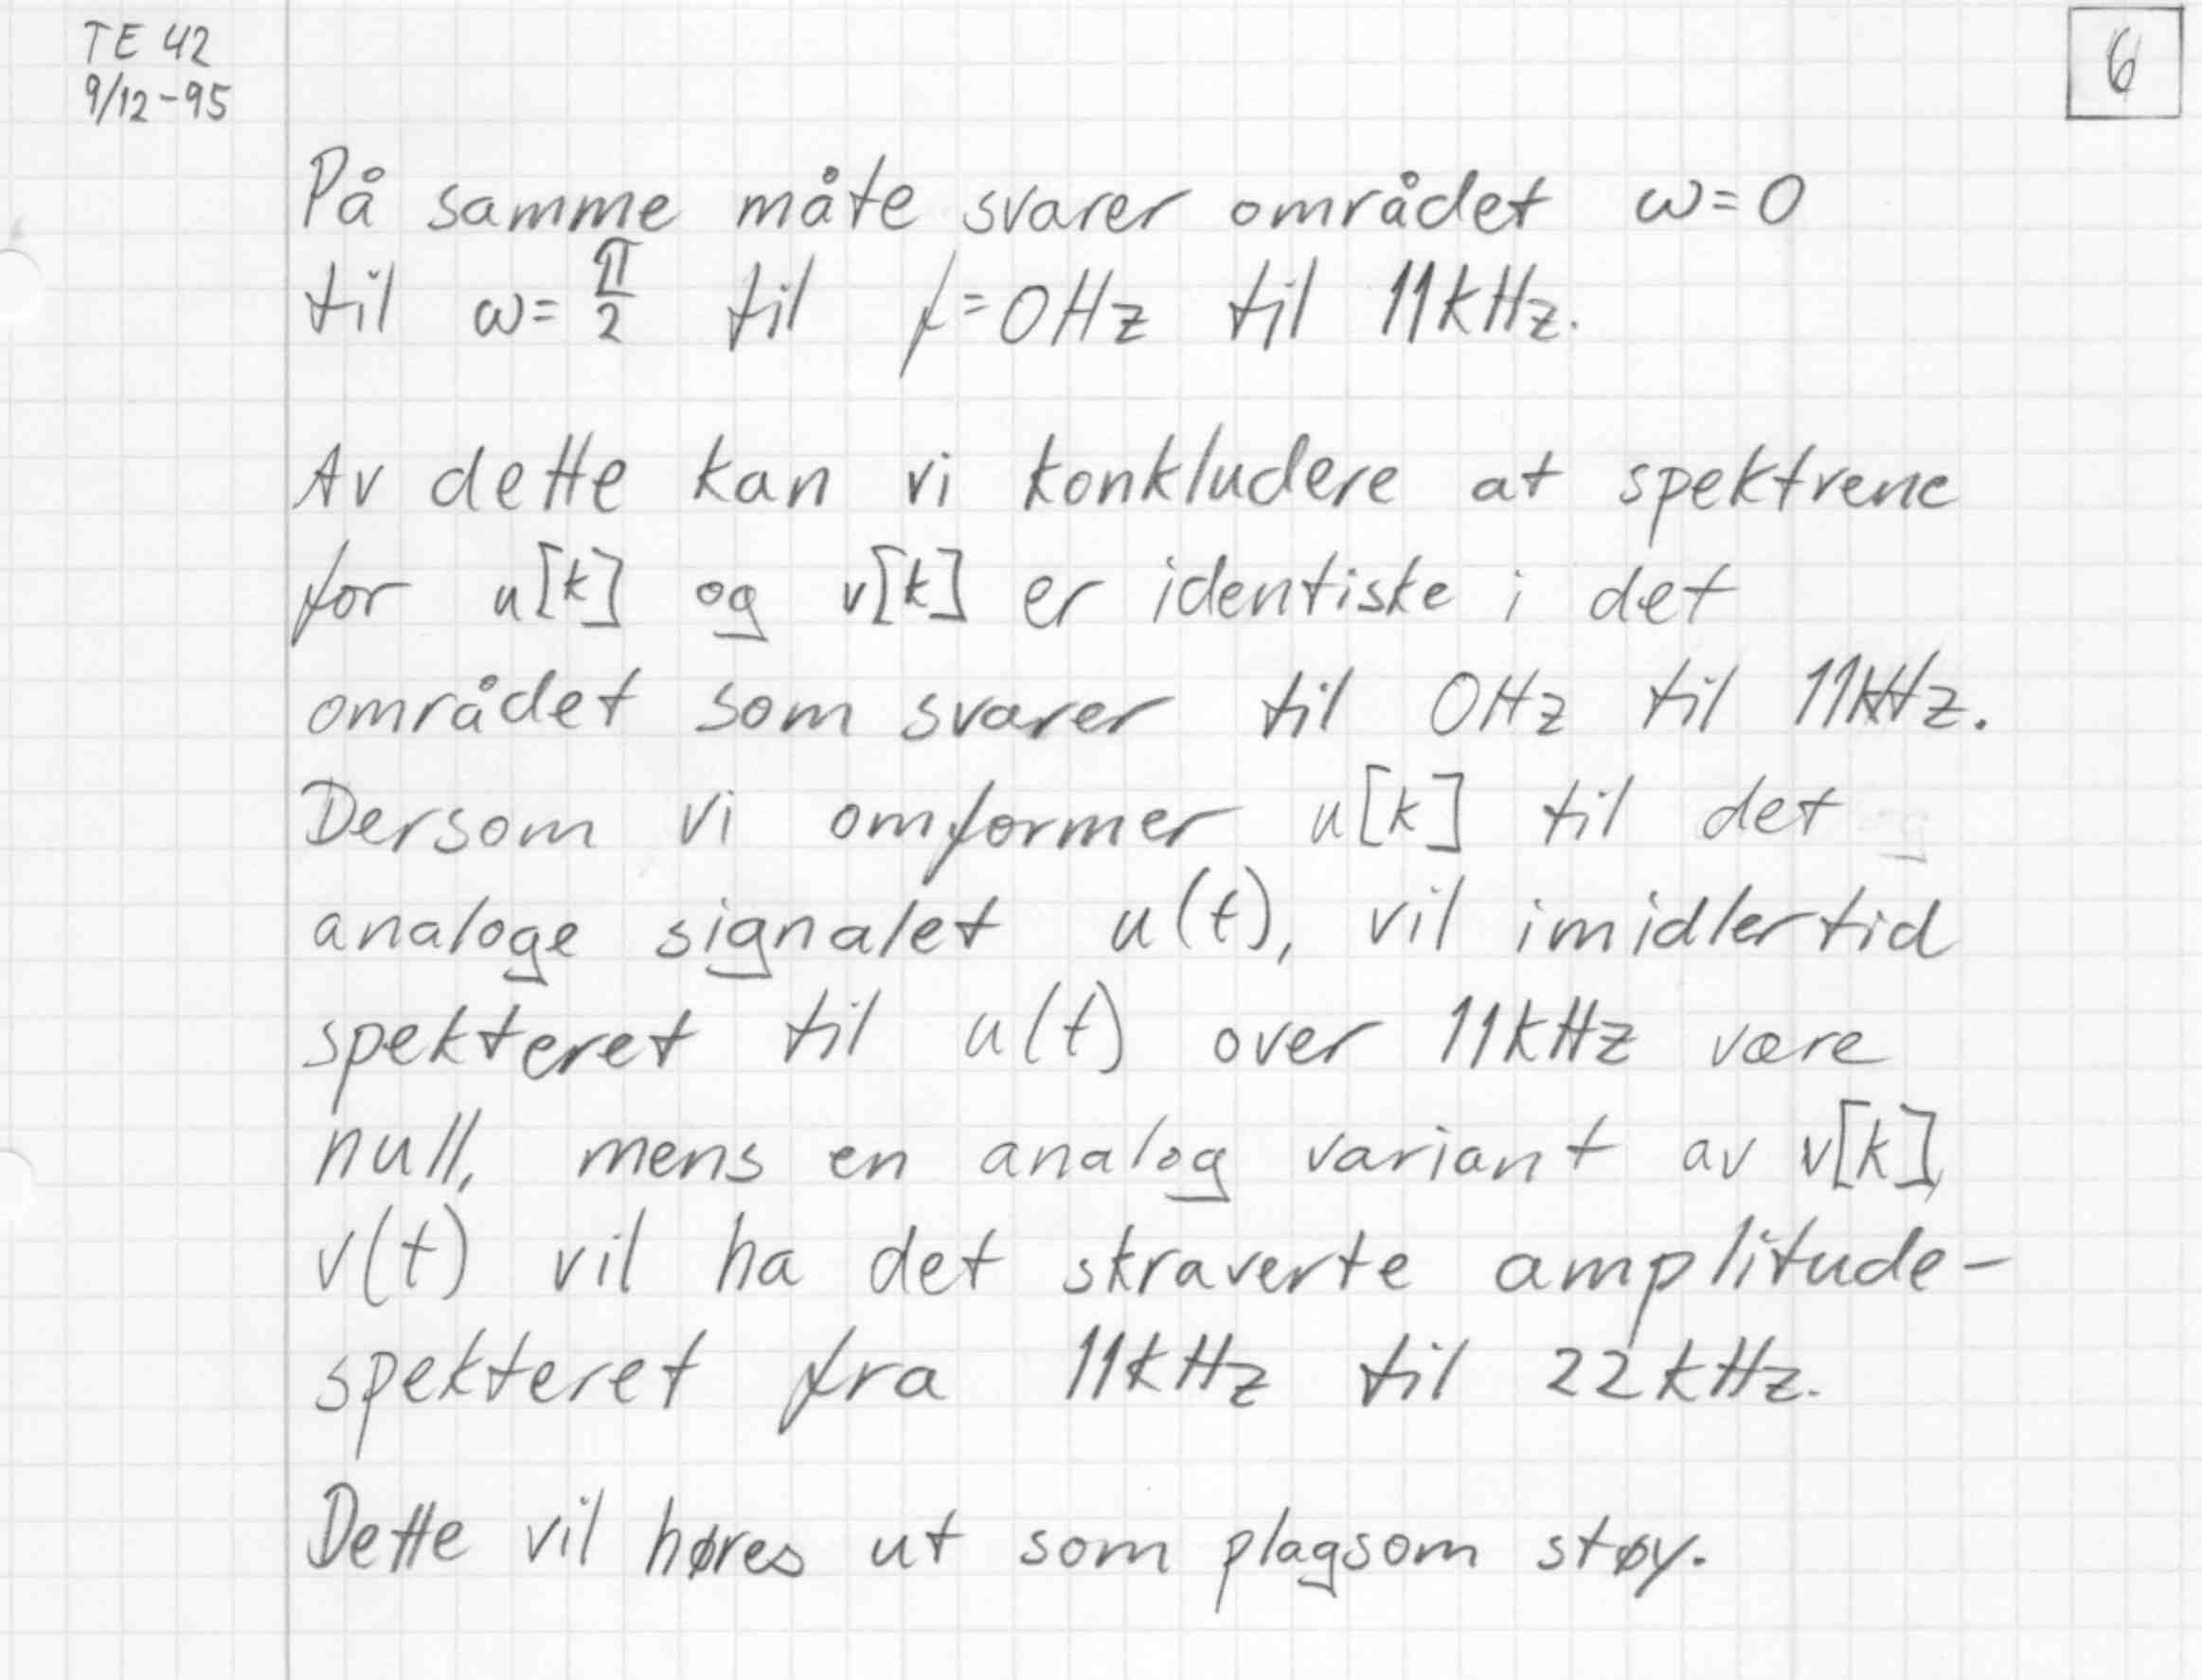 TE 42
9/12-95
6
På samme måte svarer området ω=0
til ω=π/2 til f=0Hz til 11kHz.
Av dette kan vi konkludere at spektrene
for u[k] og v[k] er identiske i det
området som svarer til 0Hz til 11kHz.
Dersom vi omformer u[k] til det
analoge signalet u(t), vil imidlertid
spekteret til u(t) over 11kHz være
null, mens en analog variant av v[k],
v(t) vil ha det skraverte amplitude-
spekteret fra 11kHz til 22kHz.
Dette vil høres ut som plagsom støy.